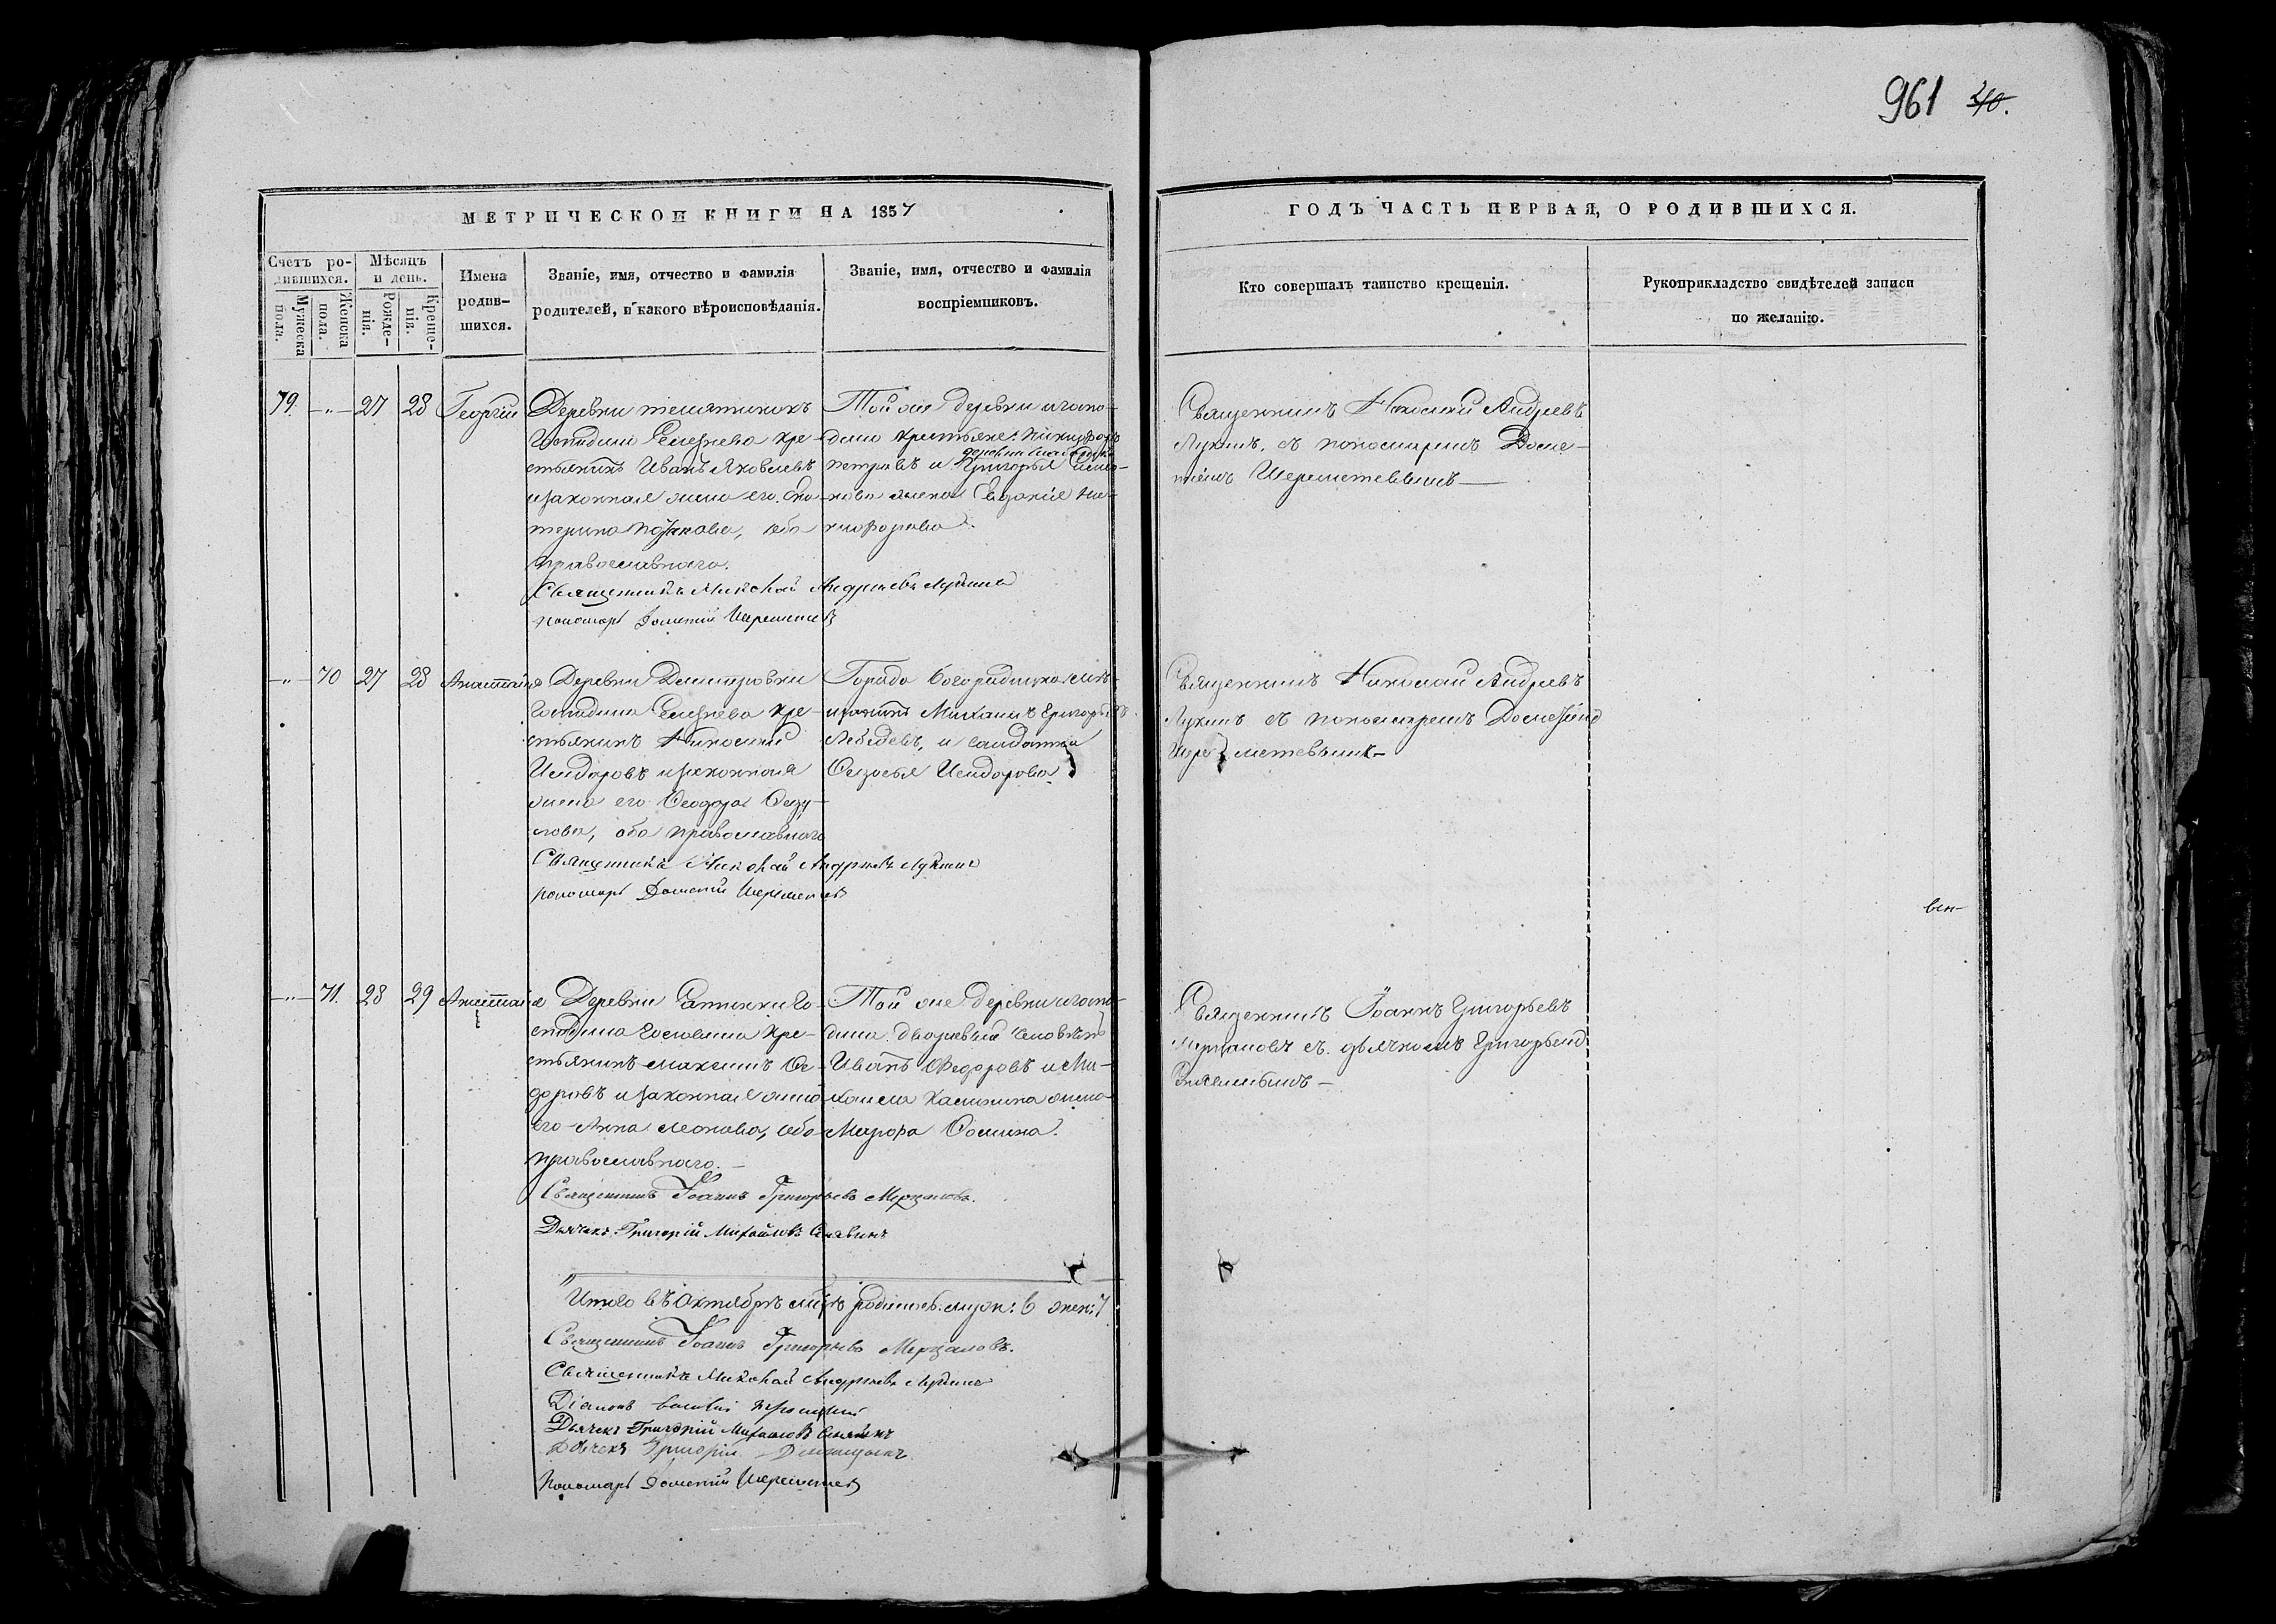 961 40.
МЕТРИЧЕСКОЙ КНИГИ НА 1857
ГОДЪ ЧАСТЬ ПЕРВАЯ, О РОДИВШИХСЯ.
Счетъ ро-
дившихся.
Мужеска
пола.
Женска
пола.
Мѣсяцъ
и день.
Рожде-
нія.
Креще-
нія.
Имена
родив-
шихся.
Званіе, имя, отчество и фамилія
родителей, и какого вѣроисповѣданія.
Званіе, имя, отчество и фамилія
воспріемниковъ.
Кто совершалъ таинство крещенія.
Рукоприкладство свидѣтелей записи
по желанію.
79. -"- 27 28 Георгій
Деревни
Господина кре-
стьянинъ Иванъ Яковлевъ
и законная жена его Ека-
терина, оба
православнаго.
Священникъ Николай Андреевъ Лукинъ
пономарь Дометій Шереметевъ
Той же деревни и госпо-
дина крестьяне:
Петровъ и Григорья Симо-
нова жена Евдокія Ни-
кифорова.
Священникъ Николай Андреевъ
Лукинъ, съ пономаремъ Доме-
тіемъ Шереметевымъ
-"- 70 27 28 Анастасія
Деревни Димитровки
Господина кре-
стьянинъ Николай
Исидоровъ и законная
жена его Феодора Феду-
лова, оба православнаго
Священникъ Николай Андреевъ Лукинъ
пономарь Дометій Шереметевъ
Города Богородицка мѣ-
щанинъ Михаилъ Григорьевъ
Лебедевъ, и солдатка
Федосья Исидорова
Священникъ Николай Андреевъ
Лукинъ съ пономаремъ Дометіемъ
Шереметевымъ
-"- 71. 28 29 Анастасія
Деревни Го-
сподина кре-
стьянинъ Максимъ Фе-
доровъ и законная жена
его Анна Леонова, оба
православнаго.
Священникъ Іоаннъ Григорьевъ Мерцаловъ.
Дьячекъ Григорій Михайловъ Синявинъ
Той же деревни и госпо-
дина дворовый человѣкъ
Иванъ Федоровъ и Ми-
хаила Калинина жена
Мавра Фомина.
Священникъ Іоаннъ Григорьевъ
Мерцаловъ съ дьячкомъ Григорьемъ
Синявинымъ
Итого въ Октябрѣ мцѣ родилось муж: 6 жен: 7
Священникъ Іоаннъ Григорьевъ Мерцаловъ.
Священникъ Николай Андреевъ Лукинъ
Діаконъ Василій
Дьячекъ Григорій Михайловъ Синявинъ
Дьячекъ Григорій
Пономарь Дометій Шереметевъ